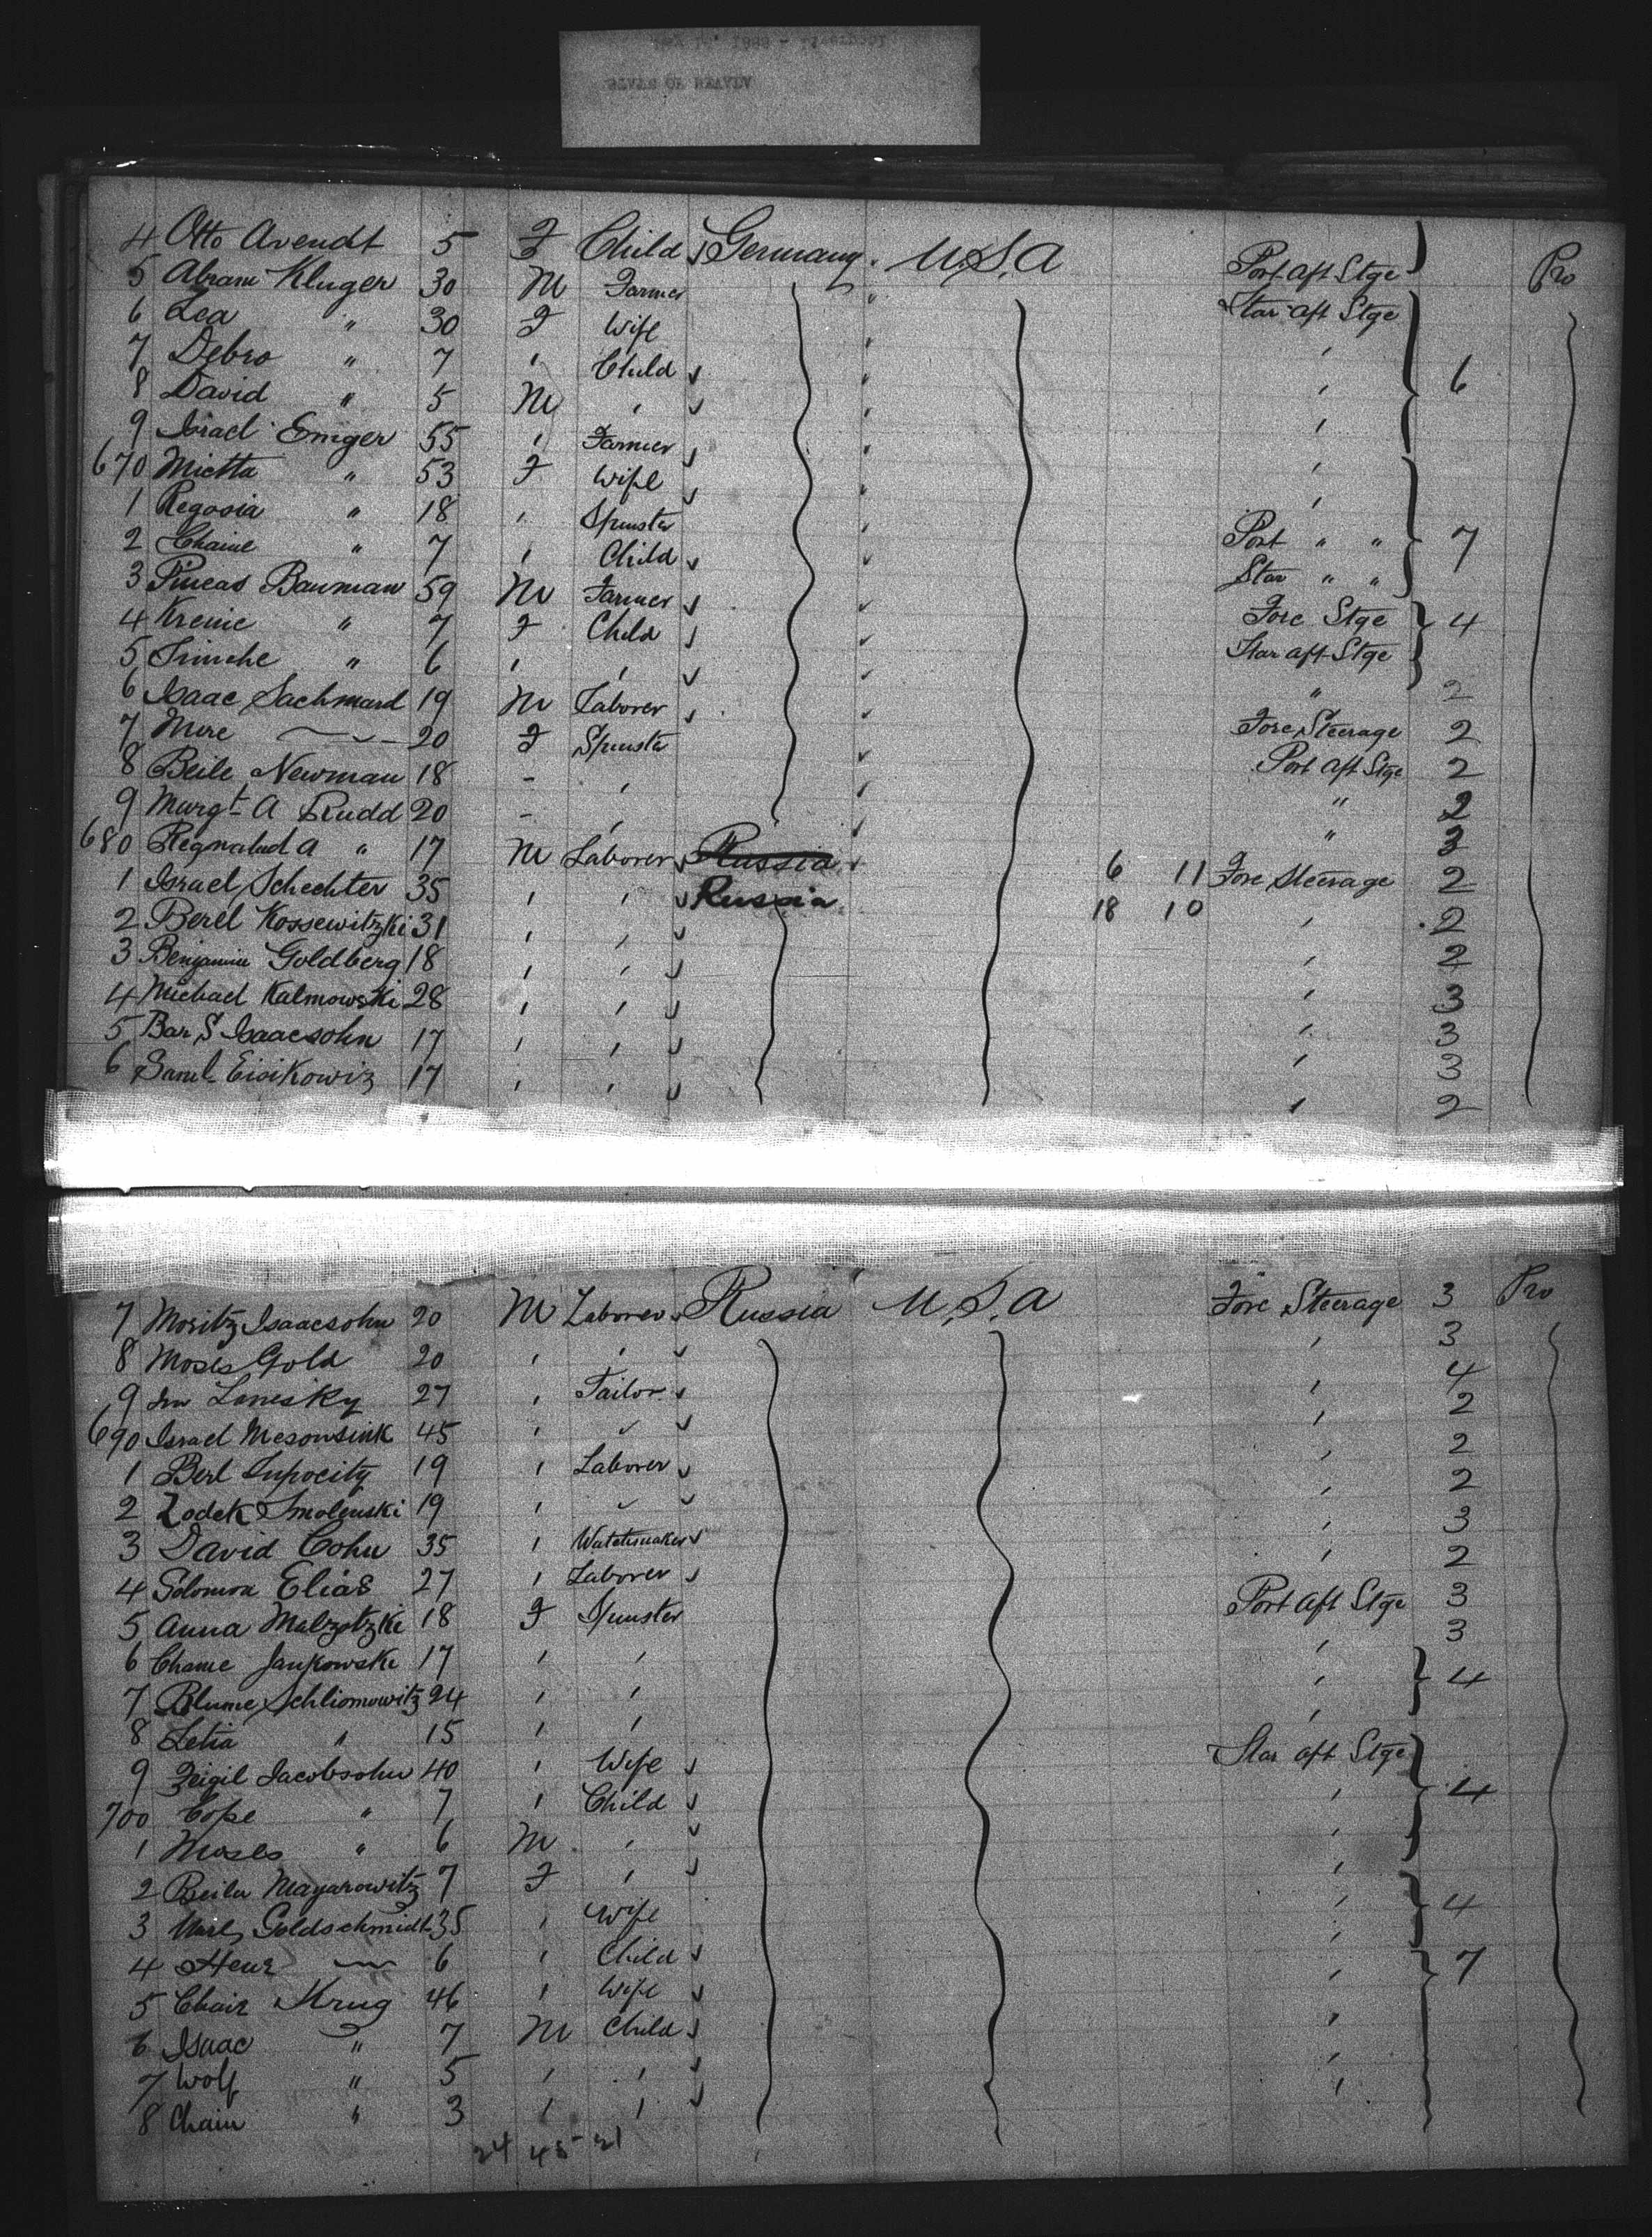 4 Otto Avendt 5 F Child Germany U.S.A Port Aft Stge Pro
5 Abram Kluger 30 M Farmer " Star Aft Stge
6 Lea " 30 F Wife
7 Debro " 7 " Child " 6
8 David " 5 M "
9 Israel Emger 55 " Farmer
670 Mietta " 53 F Wife
1 Regosia " 18 " Spinster
2 Chaine " 7 " Child Port " " 7
3 Pincas Bauman 59 M Farmer Star " "
4 Krenie " 7 F Child Fore Stge 4
5 Simche " 6 " " Star aft Stge
6 Isaac Sachmard 19 M Laborer " 2
7 Mere 20 F Spinster Fore Steerage 2
8 Beile Newman 18 " " Port Aft Stge 2
9 Margt A Rudd 20 " " " 2
680 A " 17 M Laborer Russia " 3
1 Israel Schechter 35 " " Russia 6 11 Fore Steerage 2
2 Berel Kossewitzki 31 " " 18 10 " 2
3 Benjamin Goldberg 18 " " " 2
4 Michael Kalmowski 28 " " " 3
5 Bar S Isaacsohn 17 " " " 3
6 Saml Eisikowiz 17 " " " 3
" 2
7 Moritz Isaacsohn 20 M Laborer Russia U.S.A Fore Steerage 3 Pro
8 Moses Gold 20 " " " 3
9 Linesky 27 " Tailor " 4
690 Israel Mesowsink 45 " " " 2
1 Berl Lupocity 19 " Laborer " 2
2 Zodek Smolenski 19 " " " 2
3 David Cohn 35 " Watchmaker " 3
4 Solomon Elias 27 " Laborer " 2
5 Anna Malzotzki 18 F Spinster Port Aft Stge 3
6 Chame Jankowski 17 " " " 3
7 Blume Schliomowitz 24 " " " 4
8 Letia " 15 " " "
9 Zeigil Jacobsohn 40 " Wife Star Aft Stge
700 Cope " 7 " Child " 4
1 Moses " 6 M " "
2 Beila Mayarowitz 7 F " "
3 Goldschmidt 35 " Wife " 4
4 6 " Child "
5 Krug 46 " Wife " 7
6 Isaac " 7 M Child "
7 Wolf " 5 " " "
8 Chain " 3 " " "
24 45 21